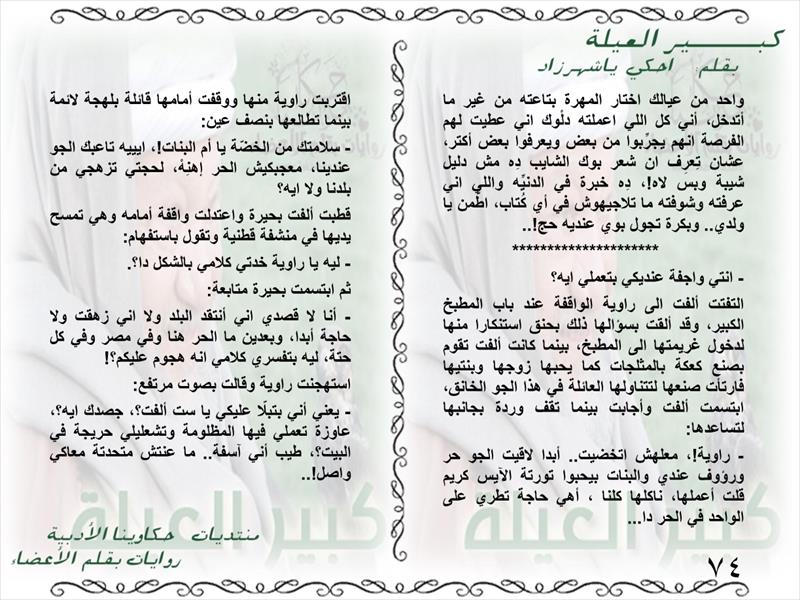 كبير العيلة
بقلم احكي ياشهرزاد
واحد من عيالك اختار المهرة بتاعته من غير ما
أتدخل، أني كل اللي اعملته دلّوك اني عطيت لهم
الفرصة انهم يجرِّبوا من بعض ويعرفوا بعض أكتر،
عشان تِعرِف ان شعر بوك الشايب دِه مش دليل
شيبة وبس لاه!، دِه خبرة في الدنيّه واللي اني
عرفته وشوفته ما تلاجيهوش في أي كُتاب، اطّمن يا
ولدي.. وبكرة تجول بوي عنديه حج!..
*********************
- انتي واجفة عنديكي بتعملي ايه؟
التفتت ألفت الى راوية الواقفة عند باب المطبخ
الكبير، وقد ألقت بسؤالها ذلك بحنق استنكارا منها
لدخول غريمتها الى المطبخ، بينما كانت ألفت تقوم
بصنع كعكة بالمثلجات كما يحبها زوجها وبنتيها
فارتأت صنعها لتتناولها العائلة في هذا الجو الخانق،
ابتسمت ألفت وأجابت بينما تقف وردة بجانبها
لتساعدها:
- راوية!، معلهش اتخضيت.. أبدا لاقيت الجو حر
ورؤوف عندي والبنات بيحبوا تورتة الآيس كريم
قلت أعملها، ناكلها كلنا ، أهي حاجة تطري على
الواحد في الحر دا...
اقتربت راوية منها ووقفت أمامها قائلة بلهجة لائمة
بينما تطالعها بنصف عين:
- سلامتك من الخضّة يا أم البنات!، اييه تاعبك الجو
عندينا، معجبكيش الحر إهنهْ، لحجتي تزهجي من
بلدنا ولا ايه؟
قطبت ألفت بحيرة واعتدلت واقفة أمامه وهي تمسح
يديها في منشفة قطنية وتقول باستفهام:
- ليه يا راوية خدتي كلامي بالشكل دا؟.
ثم ابتسمت بحيرة متابعة:
- أنا لا قصدي اني أنتقد البلد ولا اني زهقت ولا
حاجة أبدا، وبعدين ما الحر هنا وفي مصر وفي كل
حتة، ليه بتفسري كلامي انه هجوم عليكم؟!
استهجنت راوية وقالت بصوت مرتفع:
- يعني أني بتبلّا عليكي يا ست ألفت؟، جصدك ايه؟،
عاوزة تعملي فيها المظلومة وتشعليلي حريجة في
البيت؟، طيب أني آسفة.. ما عنتش متحدتة معاكي
واصل!..
كبير العيلة
كبير العيلة
منتديات حكاوينا الأدبية
روايات بقلم الأعضاء
٧٤